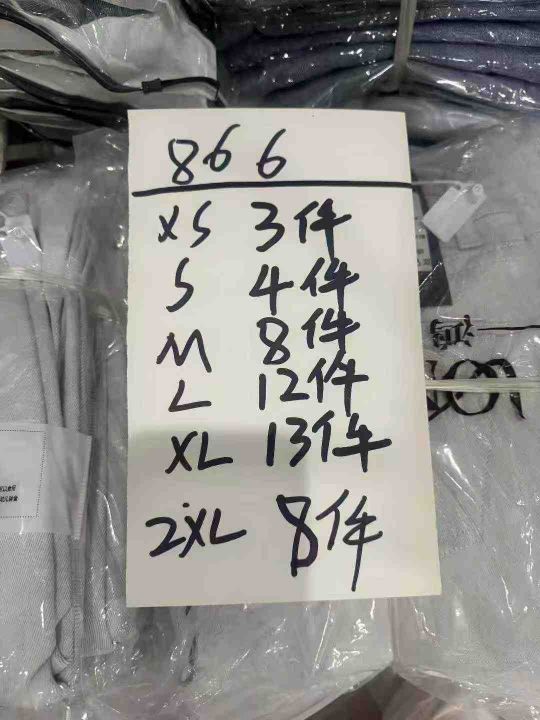 866
XS 3件
S 4件
M 8件
L 12件
XL 13件
2XL 8件